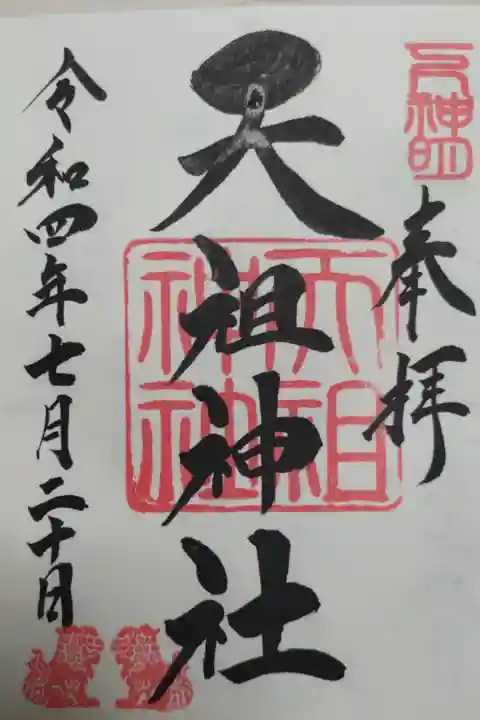 奉拝
天祖神社
令和四年七月二十日
天祖
神社